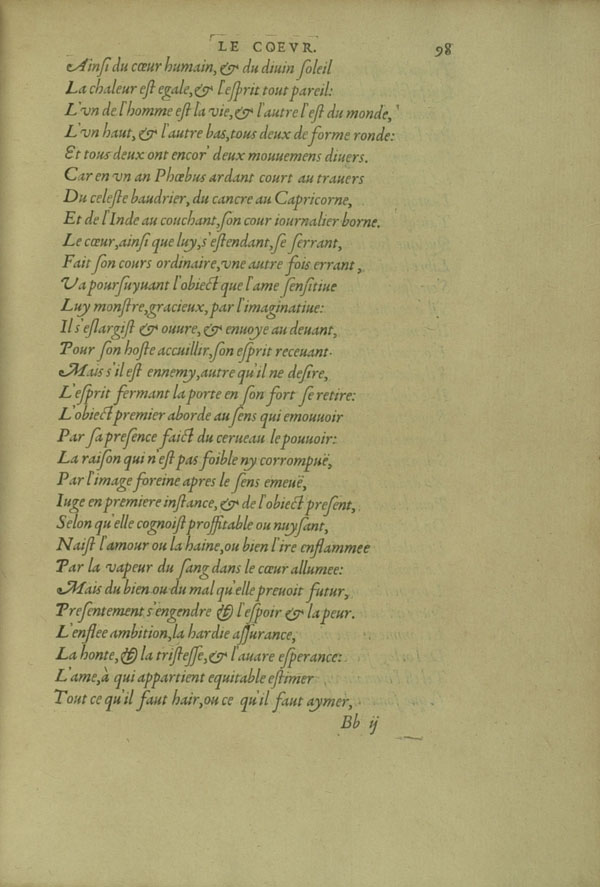 LE COEVR. 98
Ainſi du cœur humain, & du diuin ſoleil
La chaleur eſt egale, & l'eſprit tout pareil:
L'vn de l'homme eſt la vie, & l'autre l'eſt du monde,
L'vn haut, & l'autre bas, tous deux de forme ronde:
Et tous deux ont encor' deux mouuemens diuers.
Car en vn an Phœbus ardant court au trauers
Du celeſte baudrier, du cancre au Capricorne,
Et de l'Inde au couchant, ſon cour iournalier borne.
Le cœur, ainſi que luy, s'eſtendant, ſe ſerrant,
Fait ſon cours ordinaire, vne autre fois errant,
Va pourſuyuant l'obiect que l'ame ſenſitiue
Luy monſtre, gracieux, par l'imaginatiue:
Il s'eſlargiſt & ouure, & enuoye au deuant,
Pour ſon hoſte accuillir, ſon eſprit receuant.
Mais s'il eſt ennemy, autre qu'il ne deſire,
L'eſprit fermant la porte en ſon fort ſe retire:
L'obiect premier aborde au ſens qui emouuoir
Par ſa preſence faict du cerueau le pouuoir:
La raiſon qui n'eſt pas foible ny corrompuë,
Par l'image foreine apres le ſens emeuë,
Iuge en premiere inſtance, & de l'obiect preſent,
Selon qu'elle cognoiſt proffitable ou nuyſant,
Naiſt l'amour ou la haine, ou bien l'ire enflammee
Par la vapeur du ſang dans le cœur allumee:
Mais du bien ou du mal qu'elle preuoit futur,
Preſentement s'engendre & l'eſpoir & la peur.
L'enflee ambition, la hardie aſſurance,
La honte, & la triſteſſe, & l'auare eſperance:
L'ame, à qui appartient equitable eſtimer
Tout ce qu'il faut hair, ou ce qu'il faut aymer,
Bb ij